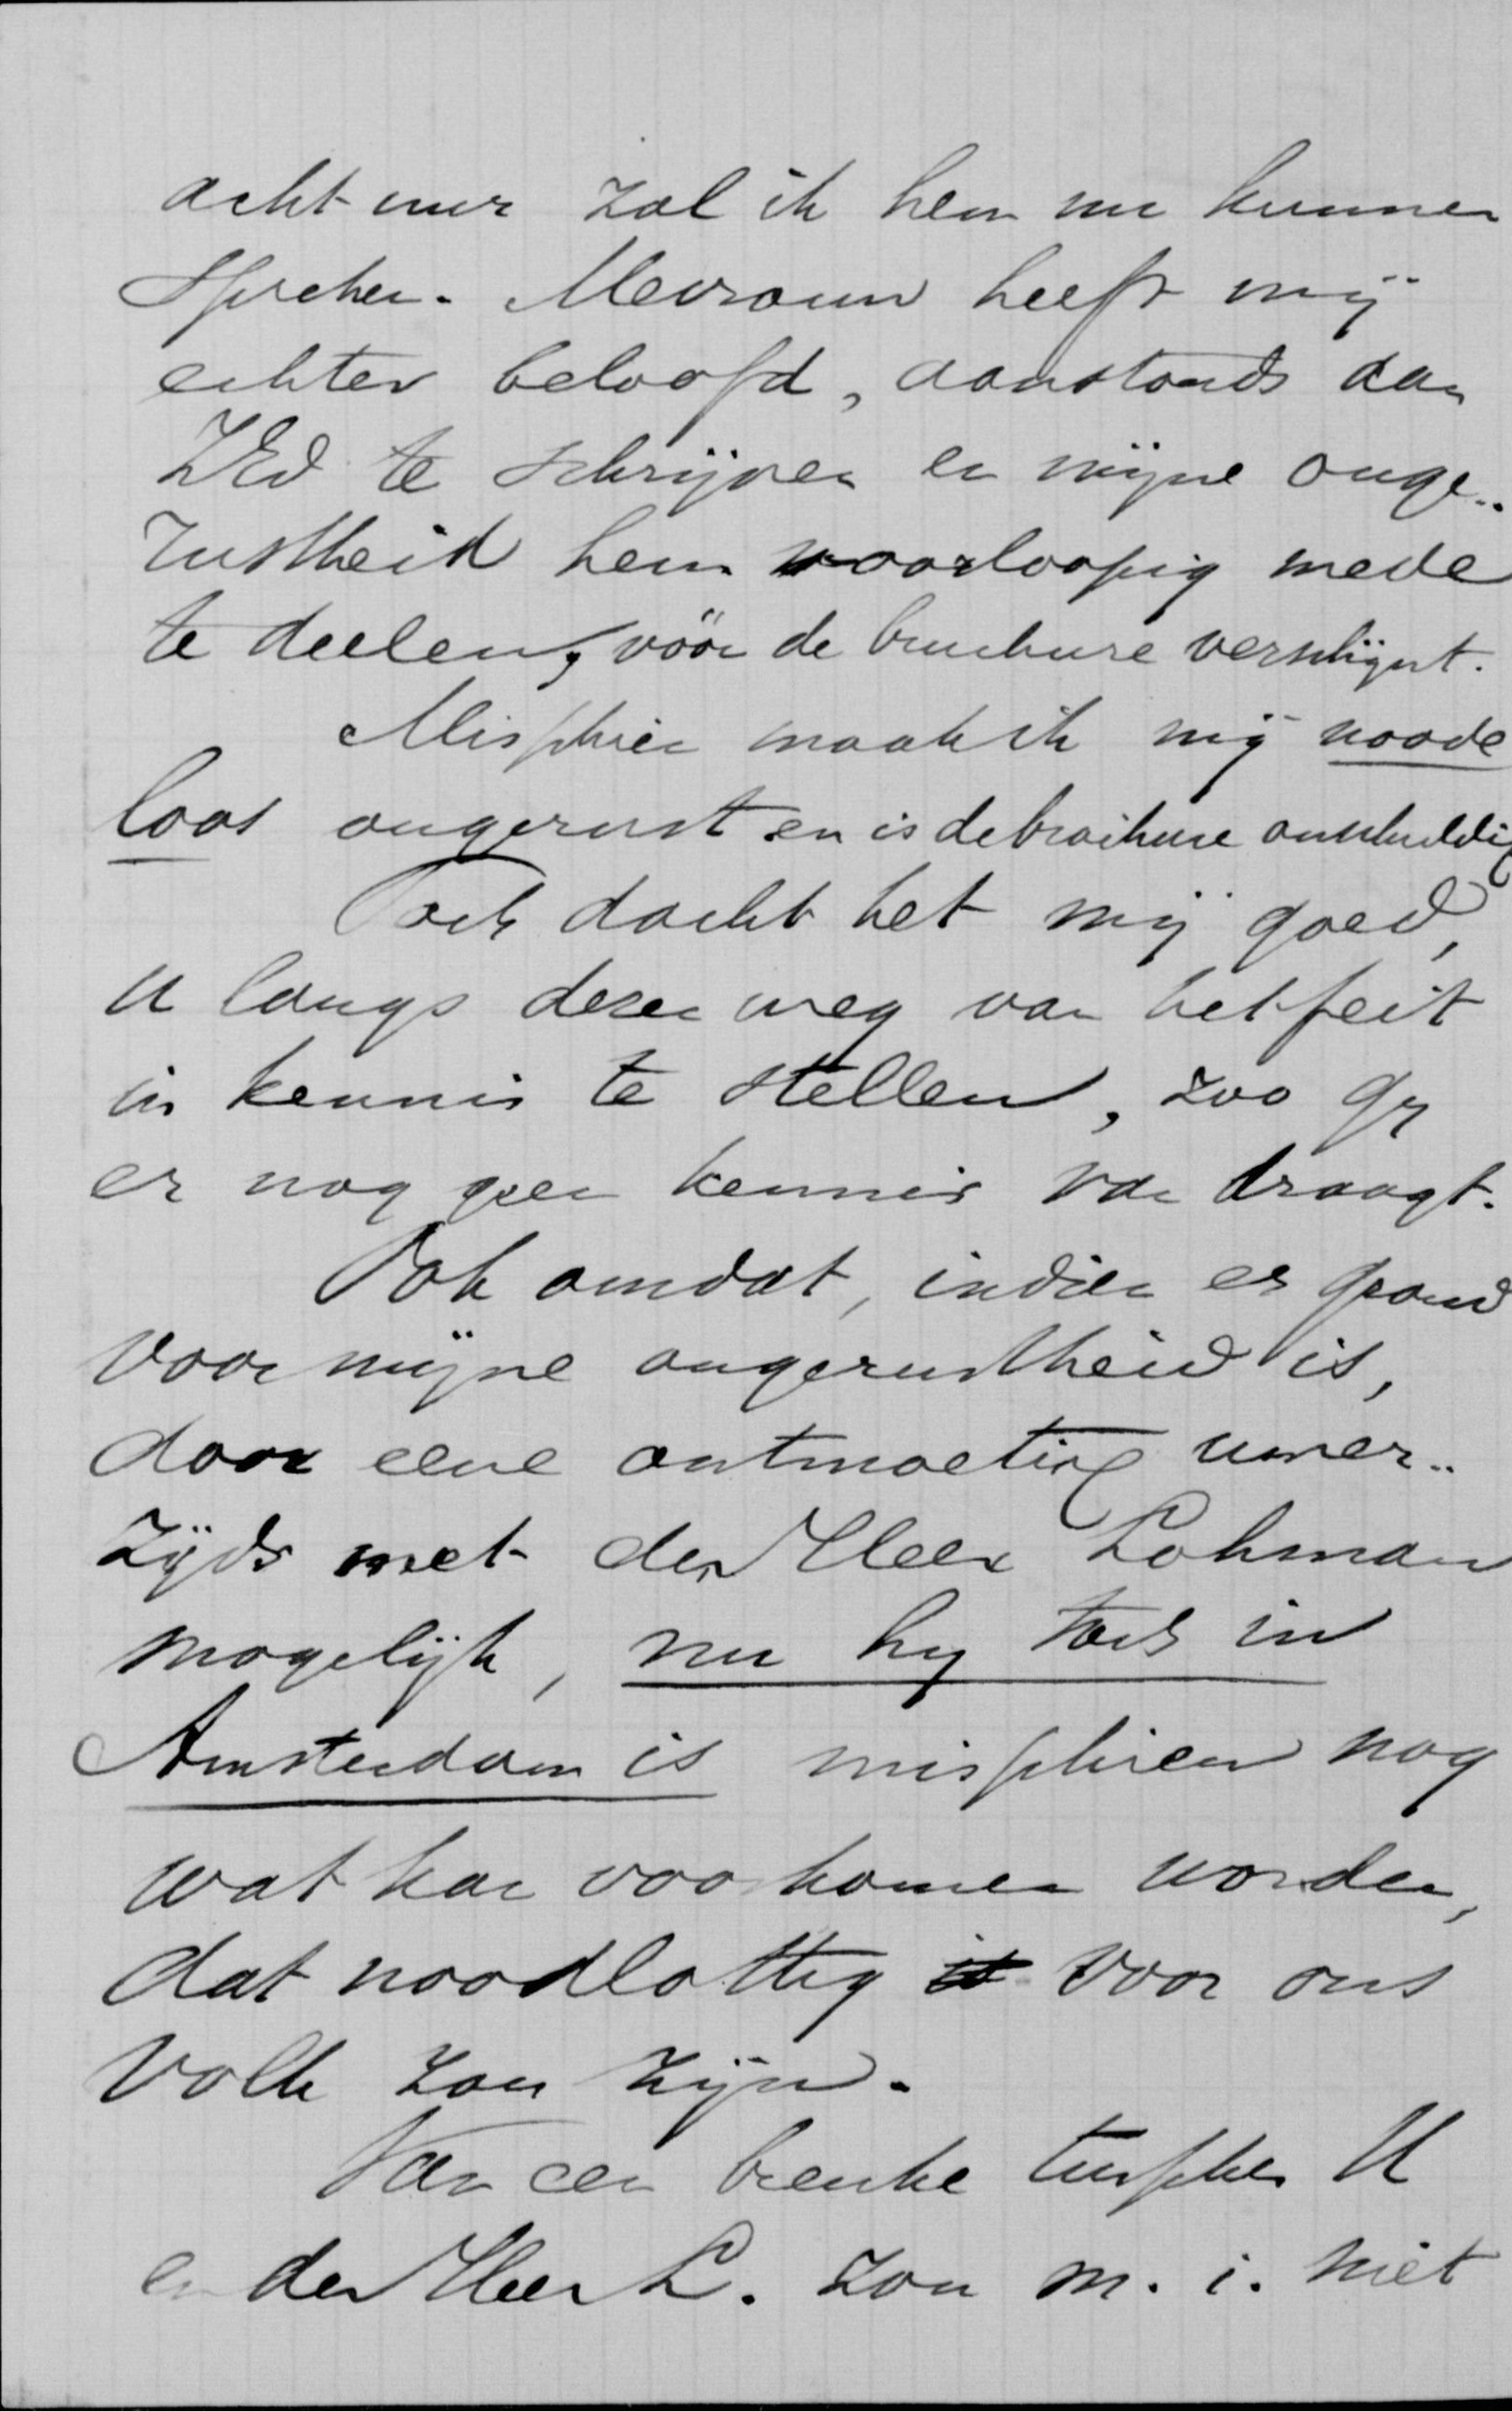 acht uur zal ik hem nu kunnen
spreken. Mevrouw heeft mij
echter beloofd, aanstonds aan
ZEd te schrijven en mijne onge-
rustheid hem voorloopig mede
te deelen, vóór de brochure verschijnt.
Misschien maak ik mij noode
loos ongerust en is de brochure onschuldig
Toch dacht het mij goed,
U langs dezen weg van het feit
in kennis te stellen, zoo gij
er nog geen kennis van draagt.
Ook omdat, indien er grond
voor mijne ongerustheid is,
door eene ontmoeting uwer-
zijds met den Heer Lohman
mogelijk, nu hij toch in
Amsterdam is misschien nog
wat kan voorkomen worden,
dat noodlottig voor ons
Volk zou zijn.
Van een breuke tusschen U
en den Heer L. zou m. i. niet